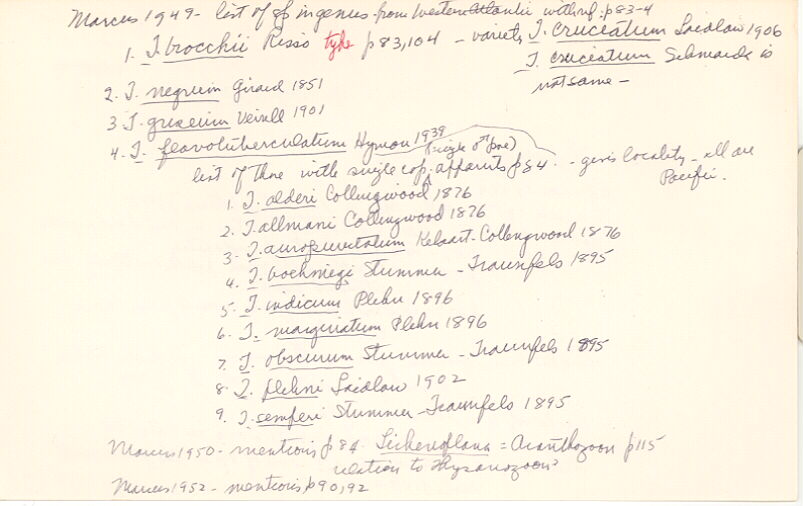 Marcus 1949 - list of sp in genus from Western Atlantic with ref. p 83-4
1. T. brocchii Risso type p 83, 104 - variety T. cruciatum Laidlaw 1906
T. cruciatum Schmarda is
not same -
2. T. negrum Girard 1851
3 T. griseum Verrill 1901
4. T. flavotuberculatum Hyman 1939
(single ♂ pore)
list of those with single cop. apparats p 84 - gives locality - all are
Pacific.
1. T. alderi Collingwood 1876
2. T. allmani Collingwood 1876
3. T. auropunctatum Kelaart-Collingwood 1876
4. T. boehmigi Stummer-Traunfels 1895
5. T. indicum Plehn 1896
6. T. marginatum Plehn 1896
7. T. obscurum Stummer-Traunfels 1895
8. T. plehni Laidlaw 1902
9. T. semperi Stummer-Traunfels 1895
Marcus 1950 - mentions p 84 - = Acanthozoon p 115
relation to Thysanozoon
Marcus 1952 - mentions p 90, 92